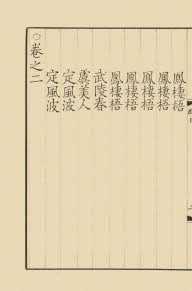 鳳棲梧
鳳棲梧
鳳棲梧
鳳棲梧
鳳棲梧
武陵春
虞美人
定風波
定風波
○卷之二